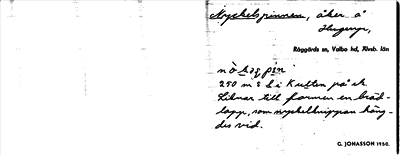 Nyckelspinnen, åker å
Hugeryr,
Röggärds sn, Valbo hd, Älvsb. län
250 m S i Kullen på sk.
Liknar till formen en bräd-
lapp, som nyckelknippan häng-
des vid.
G. JONASSON 1950.